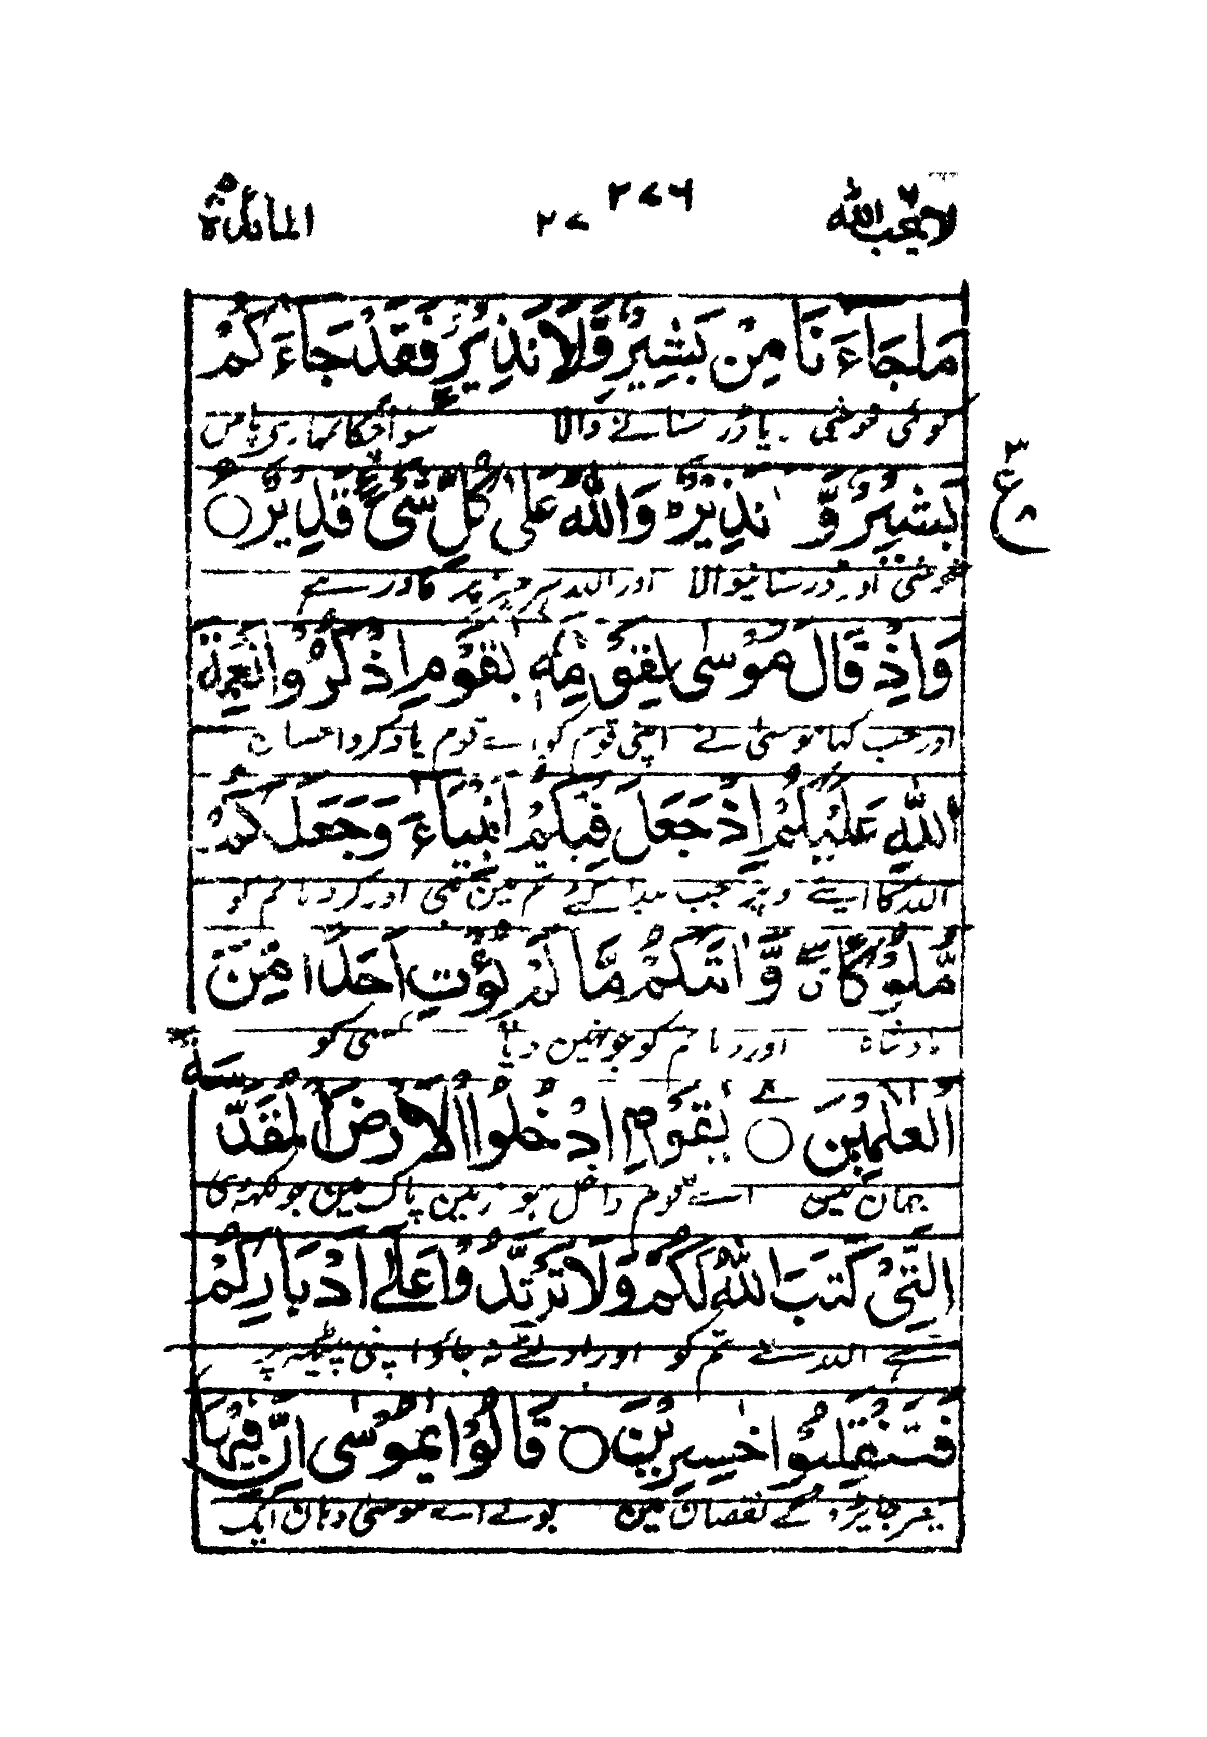 لا يحب الله ٦ ٢٧٦ ٢٧ المائدة ٥
مَا جَاءَنَا مِنْ بَشِيْرٍ وَّلَا نَذِيْرٍ فَقَدْ جَاءَكُمْ
کوئی خوشی یا ڈر سنانے والا سو آچکا تمہارے پاس
بَشِيْرٌ وَّ نَذِيْرٌ ط وَاللّٰهُ عَلٰى كُلِّ شَىْءٍ قَدِيْرٌ ○
٣ ع ٨
خوشی اور ڈر سنانیوالا اور اللہ ہر چیز پر قادر ہے
وَاِذْ قَالَ مُوْسٰى لِقَوْمِهٖ يٰقَوْمِ اذْكُرُوْا نِعْمَةَ
اور جب کہا موسیٰ نے اپنی قوم کو اے قوم یاد کرو احسان
اللّٰهِ عَلَيْكُمْ اِذْ جَعَلَ فِيْكُمْ اَنْبِيَاءَ وَجَعَلَكُمْ
اللہ کا اپنے اوپر جب پیدا کئے تم میں نبی اور کردیا تم کو
مُّلُوْكًا وَّاٰتٰىكُمْ مَّا لَمْ يُؤْتِ اَحَدًا مِّنَ
بادشاہ اور دیا تم کو جو نہیں دیا کسی کو
الْعٰلَمِيْنَ ○ يٰقَوْمِ ادْخُلُوا الْاَرْضَ الْمُقَدَّسَةَ
جہان میں اے قوم داخل ہو زمین پاک میں جو
الَّتِىْ كَتَبَ اللّٰهُ لَكُمْ وَلَا تَرْتَدُّوْا عَلٰى اَدْبَارِكُمْ
ہے اللہ نے تم کو اور الٹے نہ جاؤ اپنی پیٹھ پر
فَتَنْقَلِبُوْا خٰسِرِيْنَ ○ قَالُوْا يٰمُوْسٰى اِنَّ فِيْهَا
پھر جا پڑوگے نقصان میں بولے اے موسیٰ وہاں ایک